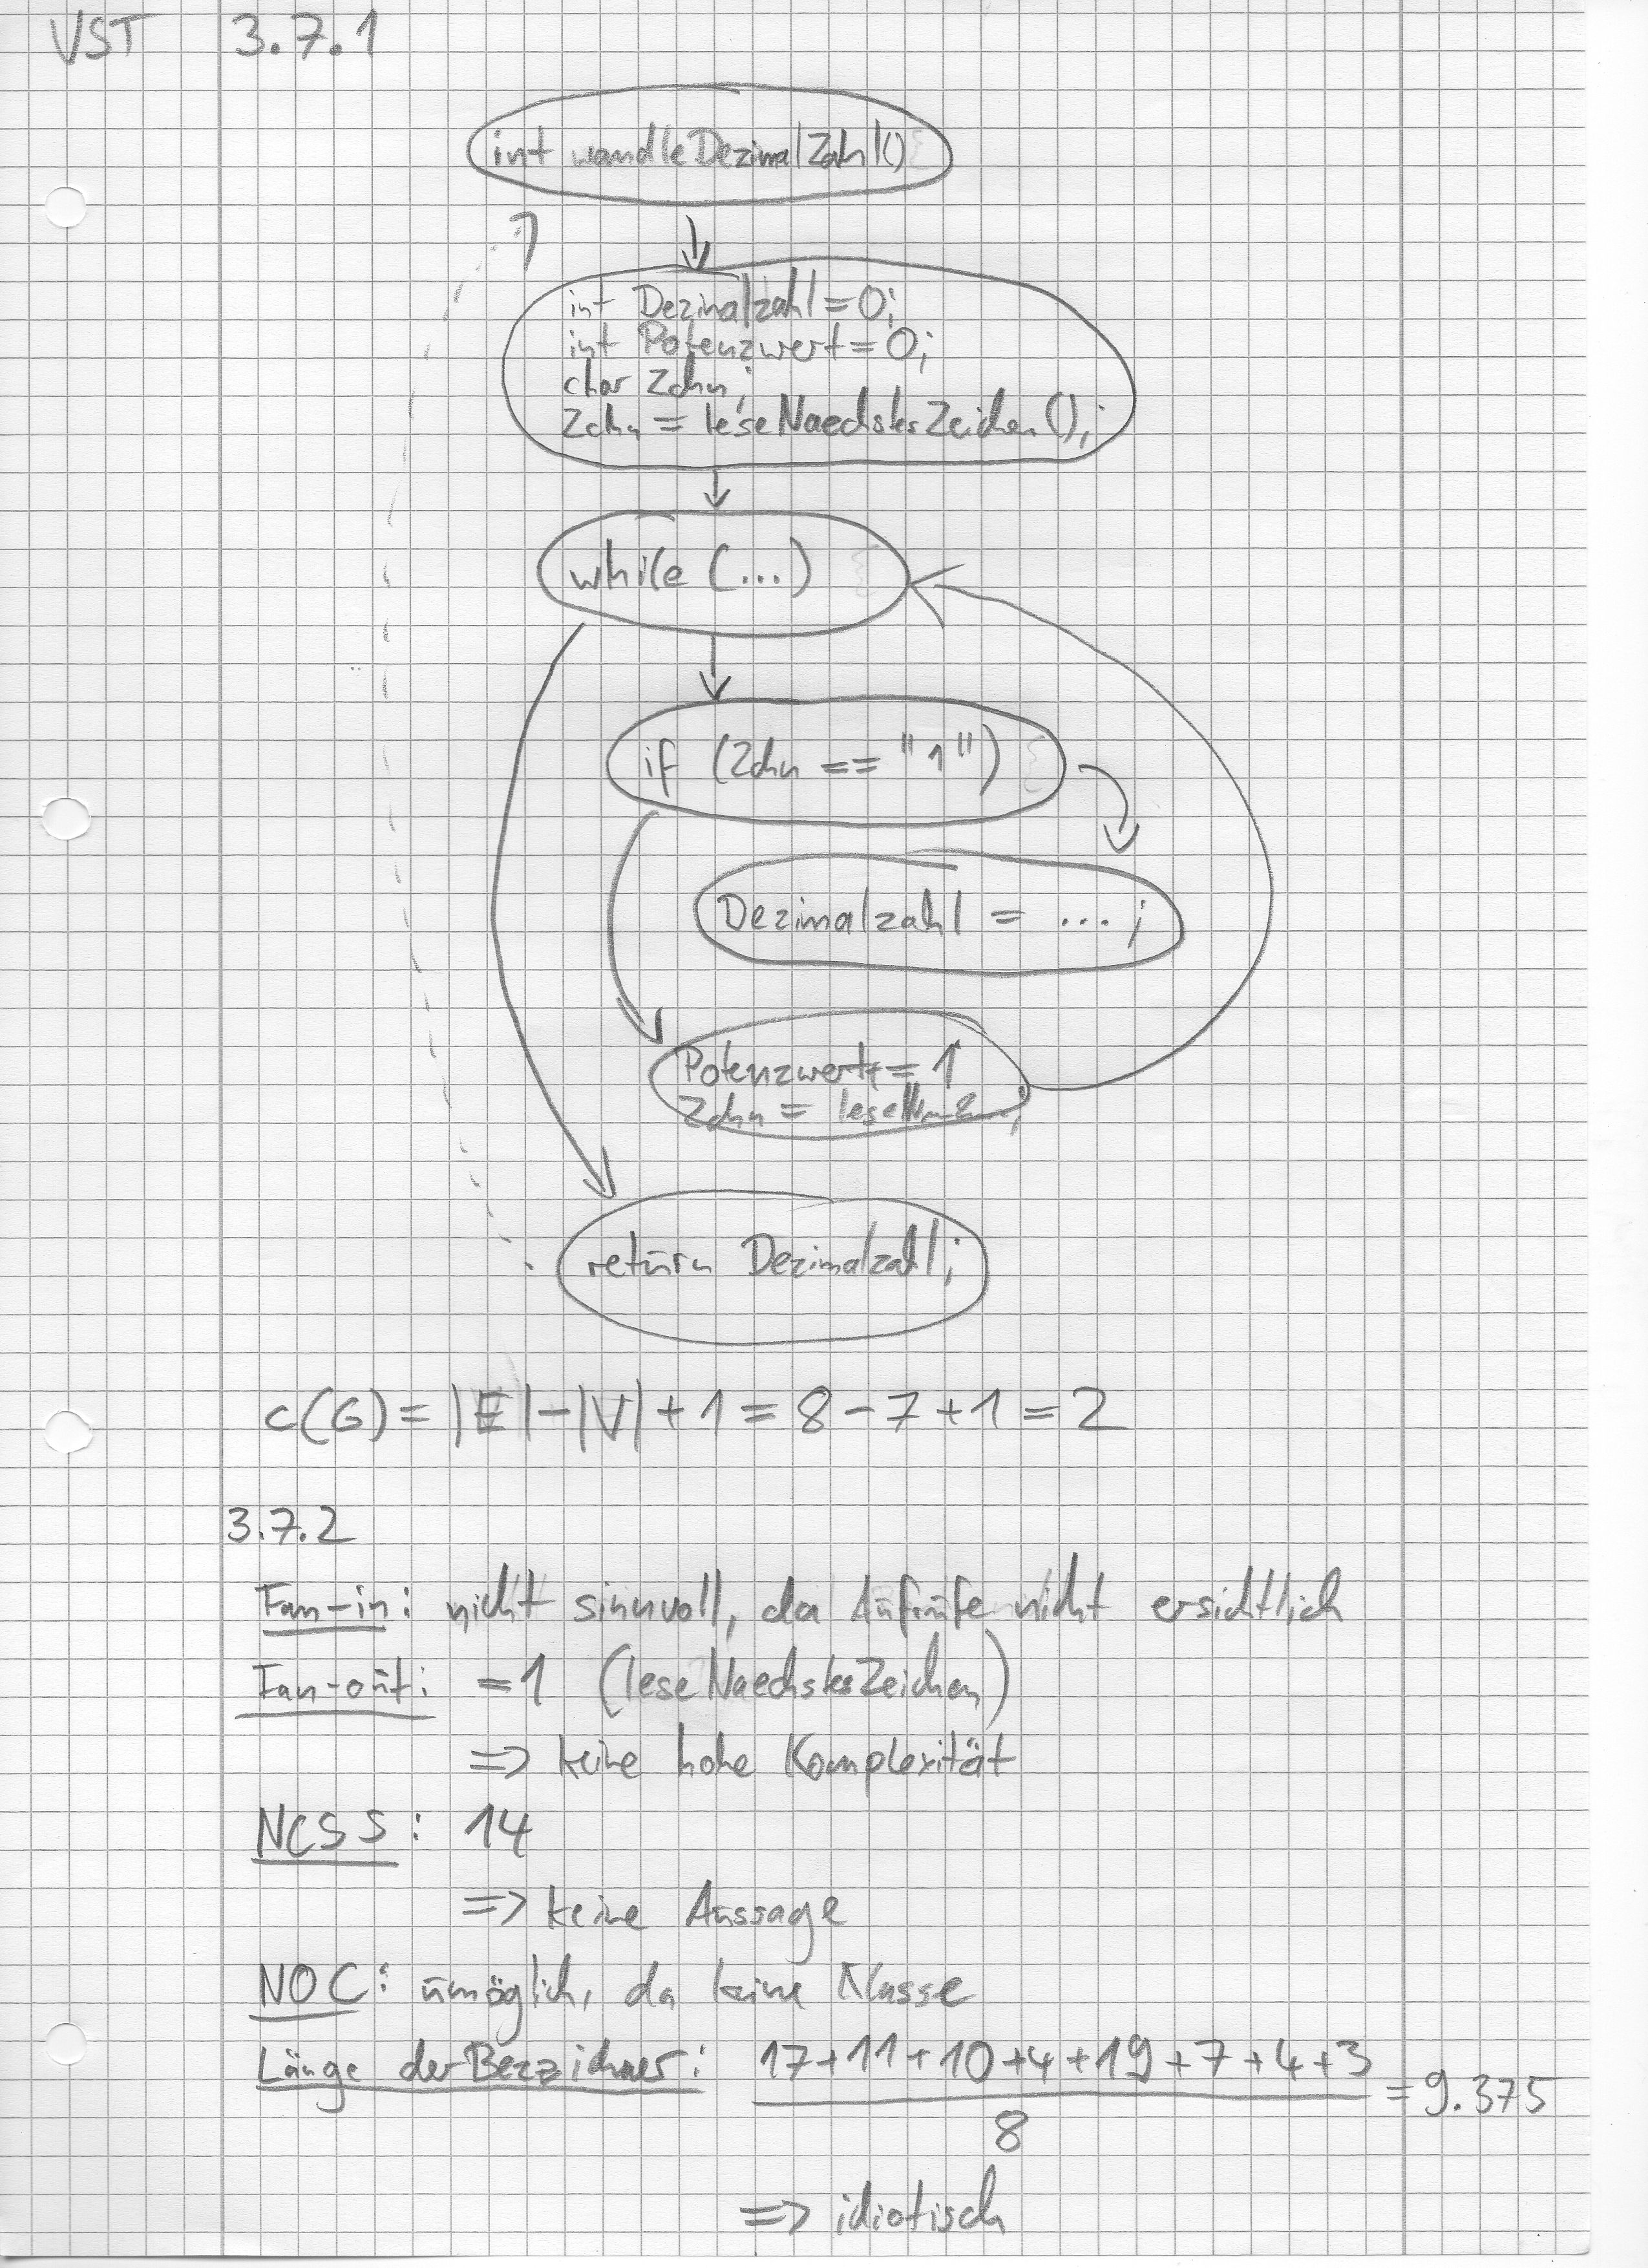 VST 3.7.1
int wandleDezimalZahl() {
int Dezimalzahl = 0;
int Potenzwert = 0;
char Zchn;
Zchn = leseNaechstesZeichen();
while (...) {
if (Zchn == "1") {
Dezimalzahl = ... ;
Potenzwert += 1
Zchn = lese ;
return Dezimalzahl;
c(G) = |E| - |V| + 1 = 8 - 7 + 1 = 2
3.7.2
Fan-in: nicht sinnvoll, da Aufrufe nicht ersichtlich
Fan-out: = 1 (leseNaechstesZeichen)
=> keine hohe Komplexität
NCSS: 14
=> keine Aussage
NOC: unmöglich, da keine Klasse
Länge der Bezeichner: 17+11+10+4+19+7+4+3 = 9.375
8
=> idiotisch